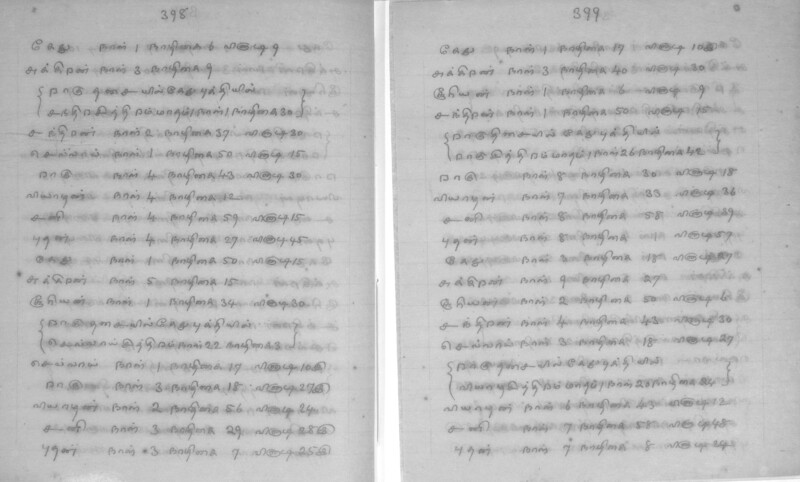 398
கேது நாள் 1 நாழிகை 6 விநாடி 9
சுக்கிரன் நாள் 3 நாழிகை 9
ராகு தசையில் கேது புத்தியில்
சந்திரன் நாள் 2 நாழிகை 37 விநாடி 30
செவ்வாய் நாள் 1 நாழிகை 50 விநாடி 15
ராகு நாள் 4 நாழிகை 43 விநாடி 30
வியாழன் நாள் 4 நாழிகை 12
சனி நாள் 4 நாழிகை 59 விநாடி 15
புதன் நாள் 4 நாழிகை 27 விநாடி 45
கேது நாள் 1 நாழிகை 50 விநாடி 15
சுக்கிரன் நாள் 5 நாழிகை 15
சூரியன் நாள் 1 நாழிகை 34 விநாடி 30
ராகு தசையில் கேது புத்தியில்
செவ்வாய் நாள் 22 நாழிகை 3
செவ்வாய் நாள் 1 நாழிகை 17 விநாடி 10
ராகு நாள் 3 நாழிகை 18 விநாடி 27
வியாழன் நாள் 2 நாழிகை 56 விநாடி 24
சனி நாள் 3 நாழிகை 29 விநாடி 28
புதன் நாள் 3 நாழிகை 7 விநாடி 25
399
கேது நாள் 1 நாழிகை 17 விநாடி 10
சுக்கிரன் நாள் 3 நாழிகை 40 விநாடி 30
சூரியன் நாள் 1 நாழிகை 6 விநாடி 9
சந்திரன் நாள் 1 நாழிகை 50 விநாடி 15
ராகு தசையில் கேது புத்தியில்
ராகு நாள் 8 நாழிகை 30 விநாடி 18
வியாழன் நாள் 7 நாழிகை 33 விநாடி 36
சனி நாள் 8 நாழிகை 58 விநாடி 39
புதன் நாள் 8 நாழிகை 1 விநாடி 57
கேது நாள் 3 நாழிகை 18 விநாடி 27
சுக்கிரன் நாள் 9 நாழிகை 27
சூரியன் நாள் 2 நாழிகை 50 விநாடி 6
சந்திரன் நாள் 4 நாழிகை 43 விநாடி 30
செவ்வாய் நாள் 3 நாழிகை 18 விநாடி 27
ராகு தசையில் கேது புத்தியில்
வியாழன் நாள் 6 நாழிகை 43 விநாடி 12
சனி நாள் 7 நாழிகை 58 விநாடி 48
புதன் நாள் 7 நாழிகை 8 விநாடி 24